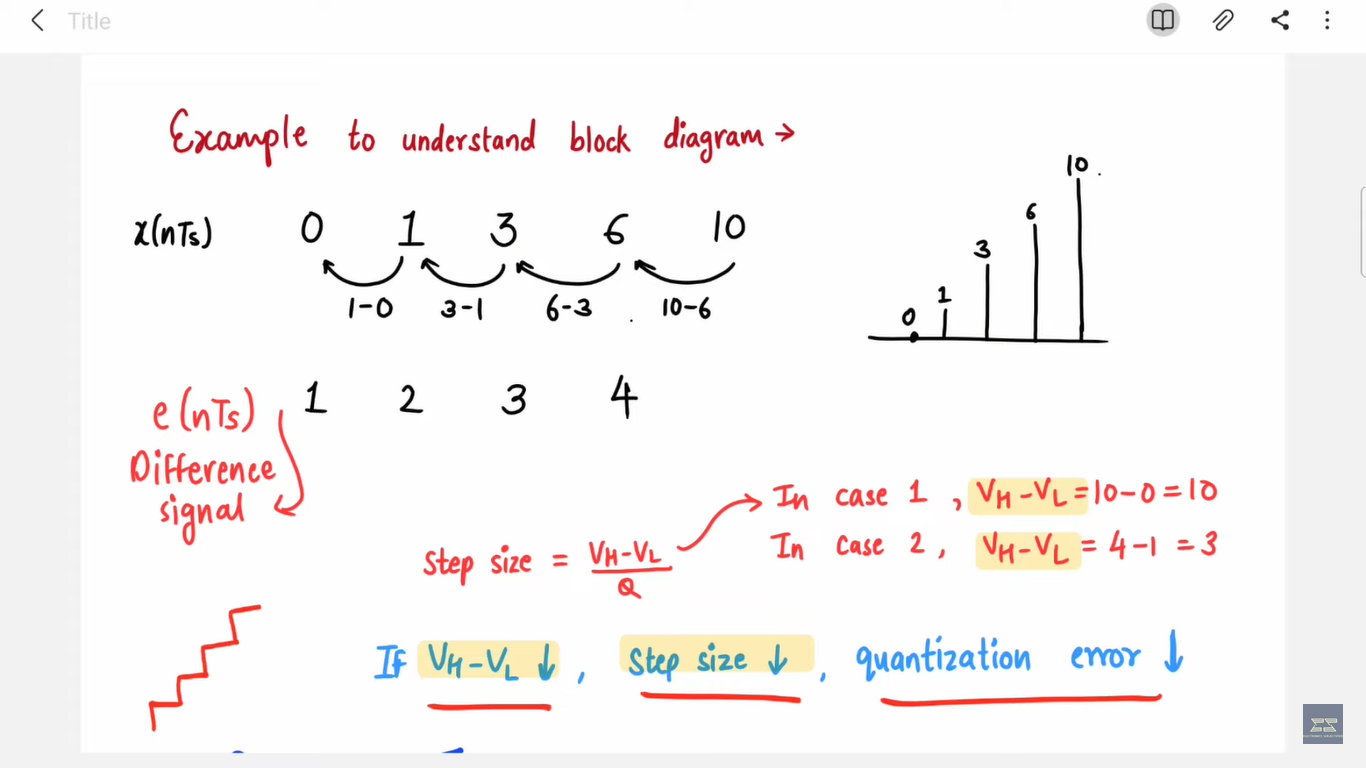 Title
Example to understand block diagram →
x(nTs) 0 1 3 6 10
1-0 3-1 6-3 10-6
0 1 3 6 10
e(nTs) 1 2 3 4
Difference
signal
In case 1, VH-VL=10-0=10
In case 2, VH-VL= 4-1 =3
Step size = VH-VL
Q
If VH-VL ↓, Step size ↓, quantization error ↓